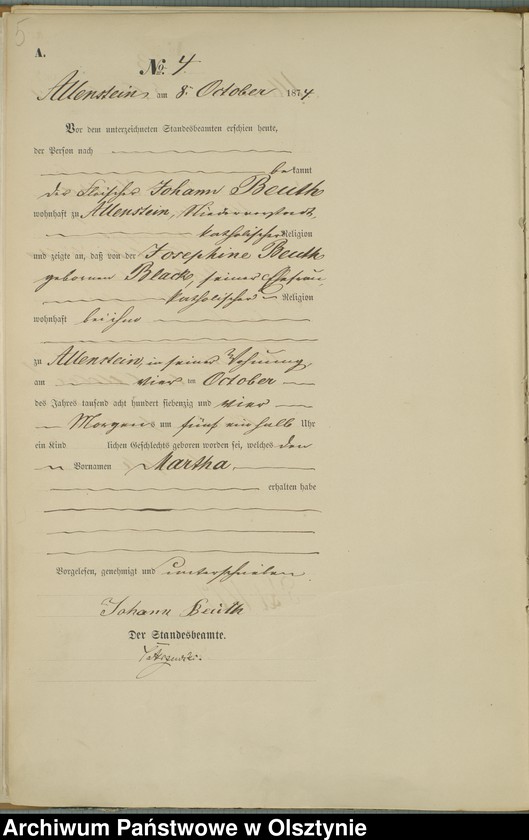 5
A.
No. 4
Allenstein am 8. October 1874
Vor dem unterzeichneten Standesbeamten erschien heute,
der Person nach
bekannt
der Fleischer Johann Beuth
wohnhaft zu Allenstein,
katholischer Religion
und zeigte an, daß von der Josephine Beuth
geborenen Black, seiner Ehefrau
katholischer Religion
wohnhaft bei ihm
zu Allenstein, in seiner Wohnung
am vier ten October
des Jahres tausend acht hundert siebenzig und vier
Morgens um fünf ein halb Uhr
ein Kind lichen Geschlechts geboren worden sei, welches den
Vornamen Martha
erhalten habe
Vorgelesen, genehmigt und unterschrieben
Johann Beuth
Der Standesbeamte.
Archiwum Państwowe w Olsztynie